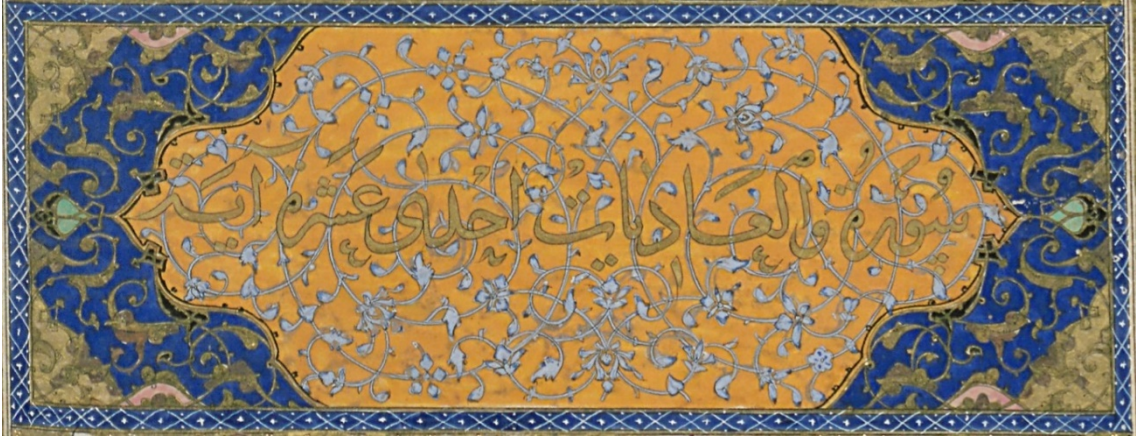 سورة والعاديات احدى عشرة اية